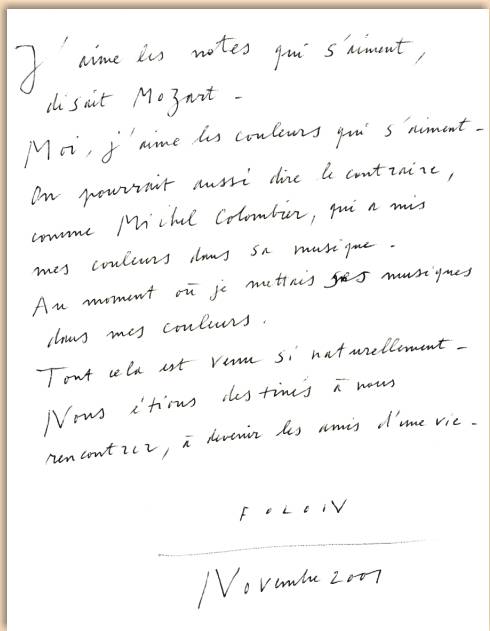 J'aime les notes qui s'aiment,
disait Mozart -
Moi, j'aime les couleurs qui s'aiment -
On pourrait aussi dire le contraire,
comme Michel Colombier, qui a mis
mes couleurs dans sa musique.
Au moment où je mettais ses musiques
dans mes couleurs.
Tout cela est venu si naturellement -
Nous étions destinés à nous
rencontrer, à devenir les amis d'une vie -
FOLON
Novembre 2001